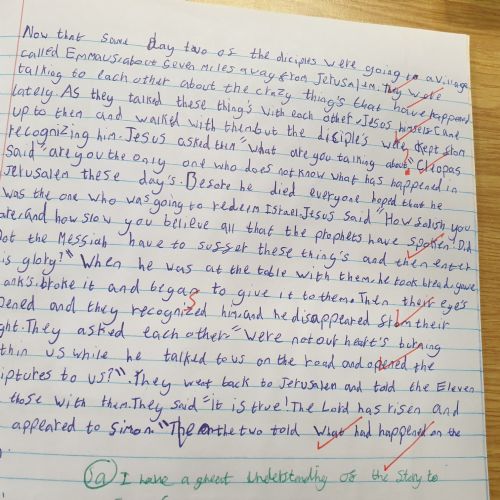 Now that same day two of the diciples were going to a village
called Emmaus about seven miles away from Jerusalem. They were
talking to each other about the crazy thing's that have happened
lately. As they talked these thing's with each other, Jesus himself came
up to them and walked with them but the diciple's were kept from
recognizing him. Jesus asked them "what are you talking about" Cleopas
said "are you the only one who does not know what has happened in
Jerusalem these day's. Before he died everyone hoped that he
was the one who was going to redeem Israel. Jesus said "How foolish you
are, and how slow you believe all that the prophets have spoken! Did
not the Messiah have to suffer these thing's and then enter
is glory?" When he was at the table with them, he took bread, gave
ank's, broke it and began to give it to them. Then their eye's
pened and they recognized him, and he disappeared from their
ght. They asked each other "Were not our heart's burning
thin us while he talked to us on the road and opened the
iptures to us?". They went back to Jerusalem and told the Eleven
those with them. They said "it is true! The Lord has risen and
appeared to Simon" The the two told What had happened on the
5a I have a great understanding of the story to